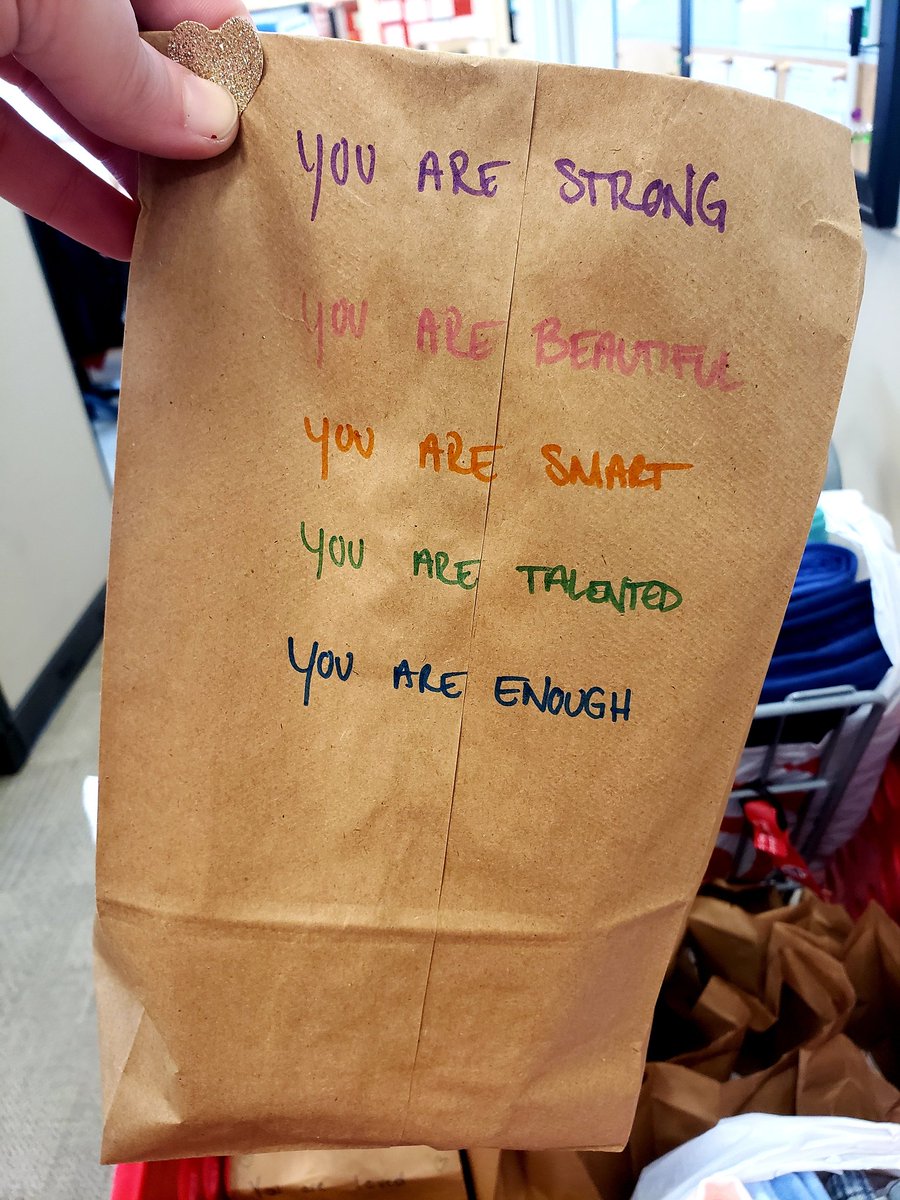 YOU ARE STRONG
YOU ARE BEAUTIFUL
YOU ARE SMART
YOU ARE TALENTED
YOU ARE ENOUGH
You are loved